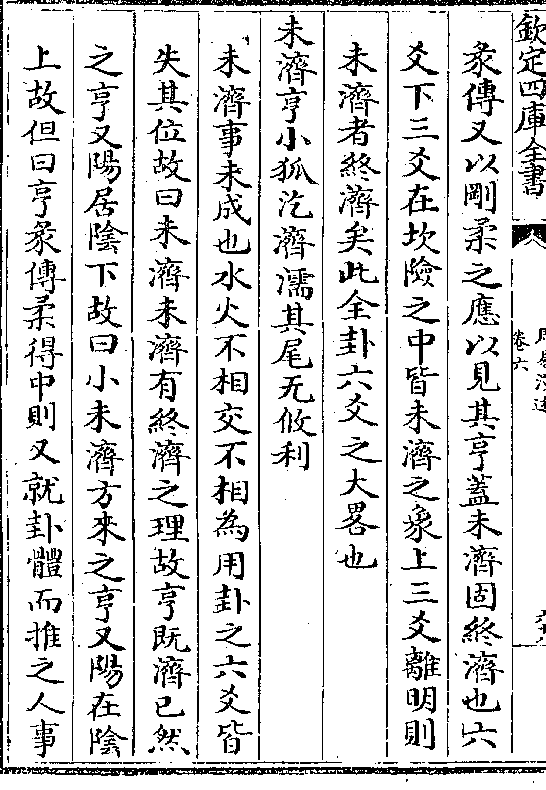 欽定四庫全書
卷六
彖傳又以剛柔之應以見其亨蓋未濟固終濟也六
爻下三爻在坎險之中皆未濟之象上三爻離明則
未濟者終濟矣此全卦六爻之大畧也
未濟亨小狐汔濟濡其尾无攸利
未濟事未成也水火不相交不相為用卦之六爻皆
失其位故曰未濟未濟有終濟之理故亨既濟已然
之亨又陽居陰下故曰小未濟方來之亨又陽在陰
上故但曰亨彖傳柔得中則又就卦體而推之人事